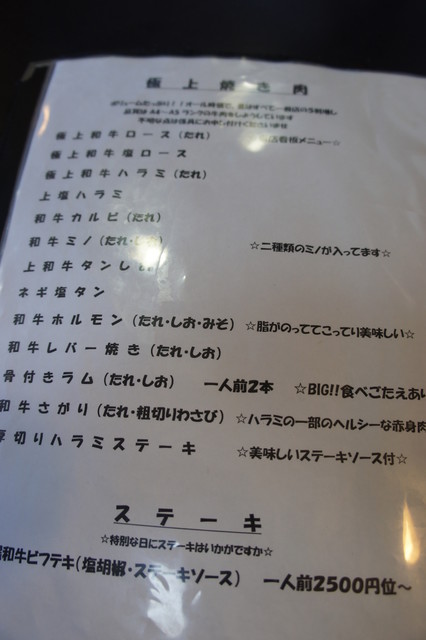 極上焼き肉
ボリュームたっぷり！！オール
品質は A4～A5 ランクの牛肉をしようしています
極上和牛ロース（たれ） 店看板メニュー☆
極上和牛塩ロース
極上和牛ハラミ（たれ）
上塩ハラミ
和牛カルビ（たれ）
和牛ミノ（たれ・しお） ☆二種類のミノが入ってます☆
上和牛タンしお
ネギ塩タン
和牛ホルモン（たれ・しお・みそ） ☆脂がのっててこってり美味しい☆
和牛レバー焼き（たれ・しお）
骨付きラム（たれ・しお） 一人前2本 ☆BIG!!食べごたえあり
和牛さがり（たれ・粗切りわさび） ☆ハラミの一部のヘルシーな赤身肉
厚切りハラミステーキ ☆美味しいステーキソース付☆
ステーキ
☆特別な日にステーキはいかがですか☆
和牛ビフテキ（塩胡椒・ステーキソース） 一人前2500円位～